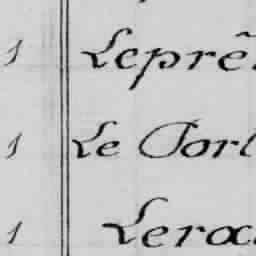 1 Leprê
1 Le Porl
1 Lera